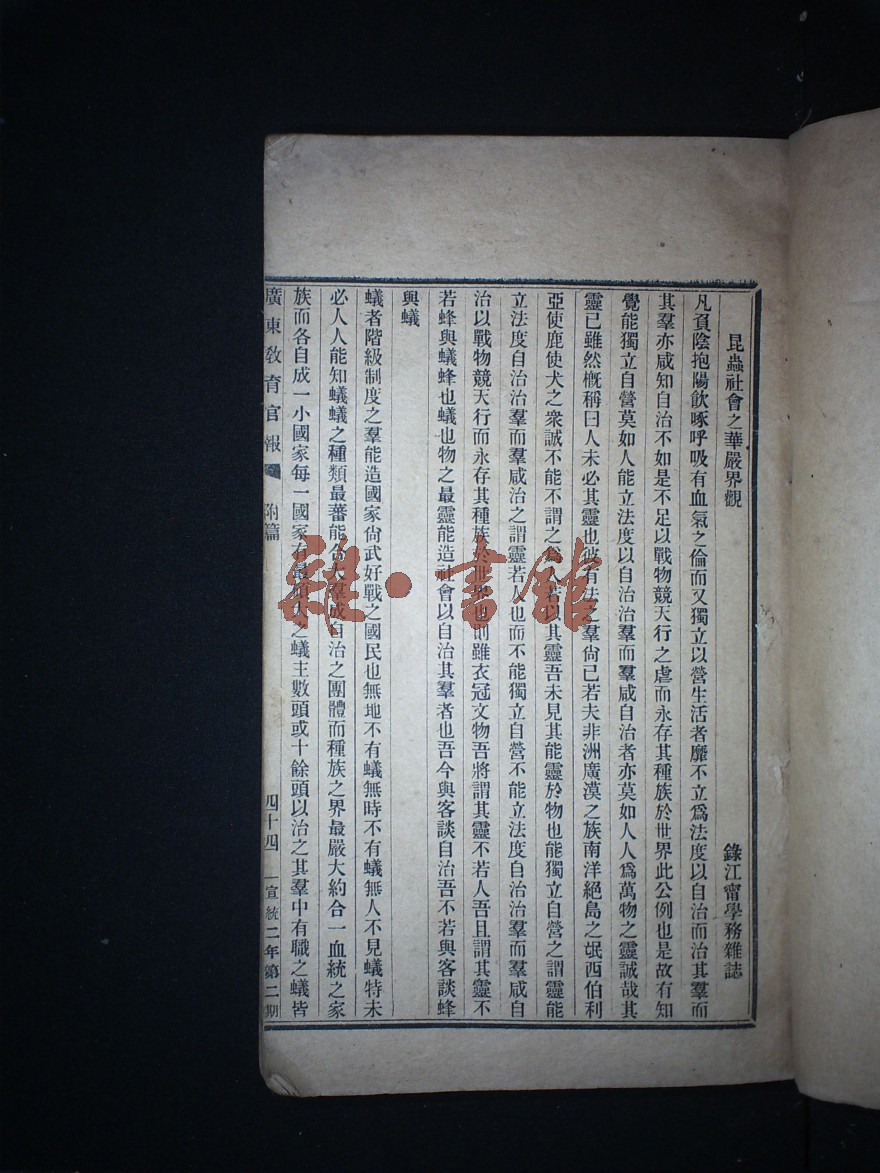 昆蟲社會之華嚴界觀 錄江甯學務雜誌
凡負陰抱陽飲啄呼吸有血氣之倫而又獨立以營生活者靡不立爲法度以自治而治其羣而
其羣亦咸知自治不如是不足以戰物競天行之虐而永存其種族於世界此公例也是故有知
覺能獨立自營莫如人能立法度以自治治羣而羣咸自治者亦莫如人人爲萬物之靈誠哉其
靈已雖然槪稱曰人未必其靈也彼有法之羣尙已若夫非洲廣漠之族南洋絕島之氓西伯利
亞使鹿使犬之衆誠不能不謂之爲人若以其靈吾未見其能靈於物也能獨立自營之謂靈能
立法度自治治羣而羣咸治之謂靈若人也而不能獨立自營不能立法度自治治羣而羣咸自
治以戰物競天行而永存其種族於世界也則雖衣冠文物吾將謂其靈不若人吾且謂其靈不
若蜂與蟻蜂也蟻也物之最靈能造社會以自治其羣者也吾今與客談自治吾不若與客談蜂
與蟻
蟻者階級制度之羣能造國家尙武好戰之國民也無地不有蟻無時不有蟻無人不見蟻特未
必人人能知蟻蟻之種類最蕃能合大羣成自治之團體而種族之界最嚴大約合一血統之家
族而各自成一小國家每一國家有最碩大之蟻主數頭或十餘頭以治之其羣中有職之蟻皆
廣東敎育官報 附篇 四十四 宣統二年第二期
雜·書館